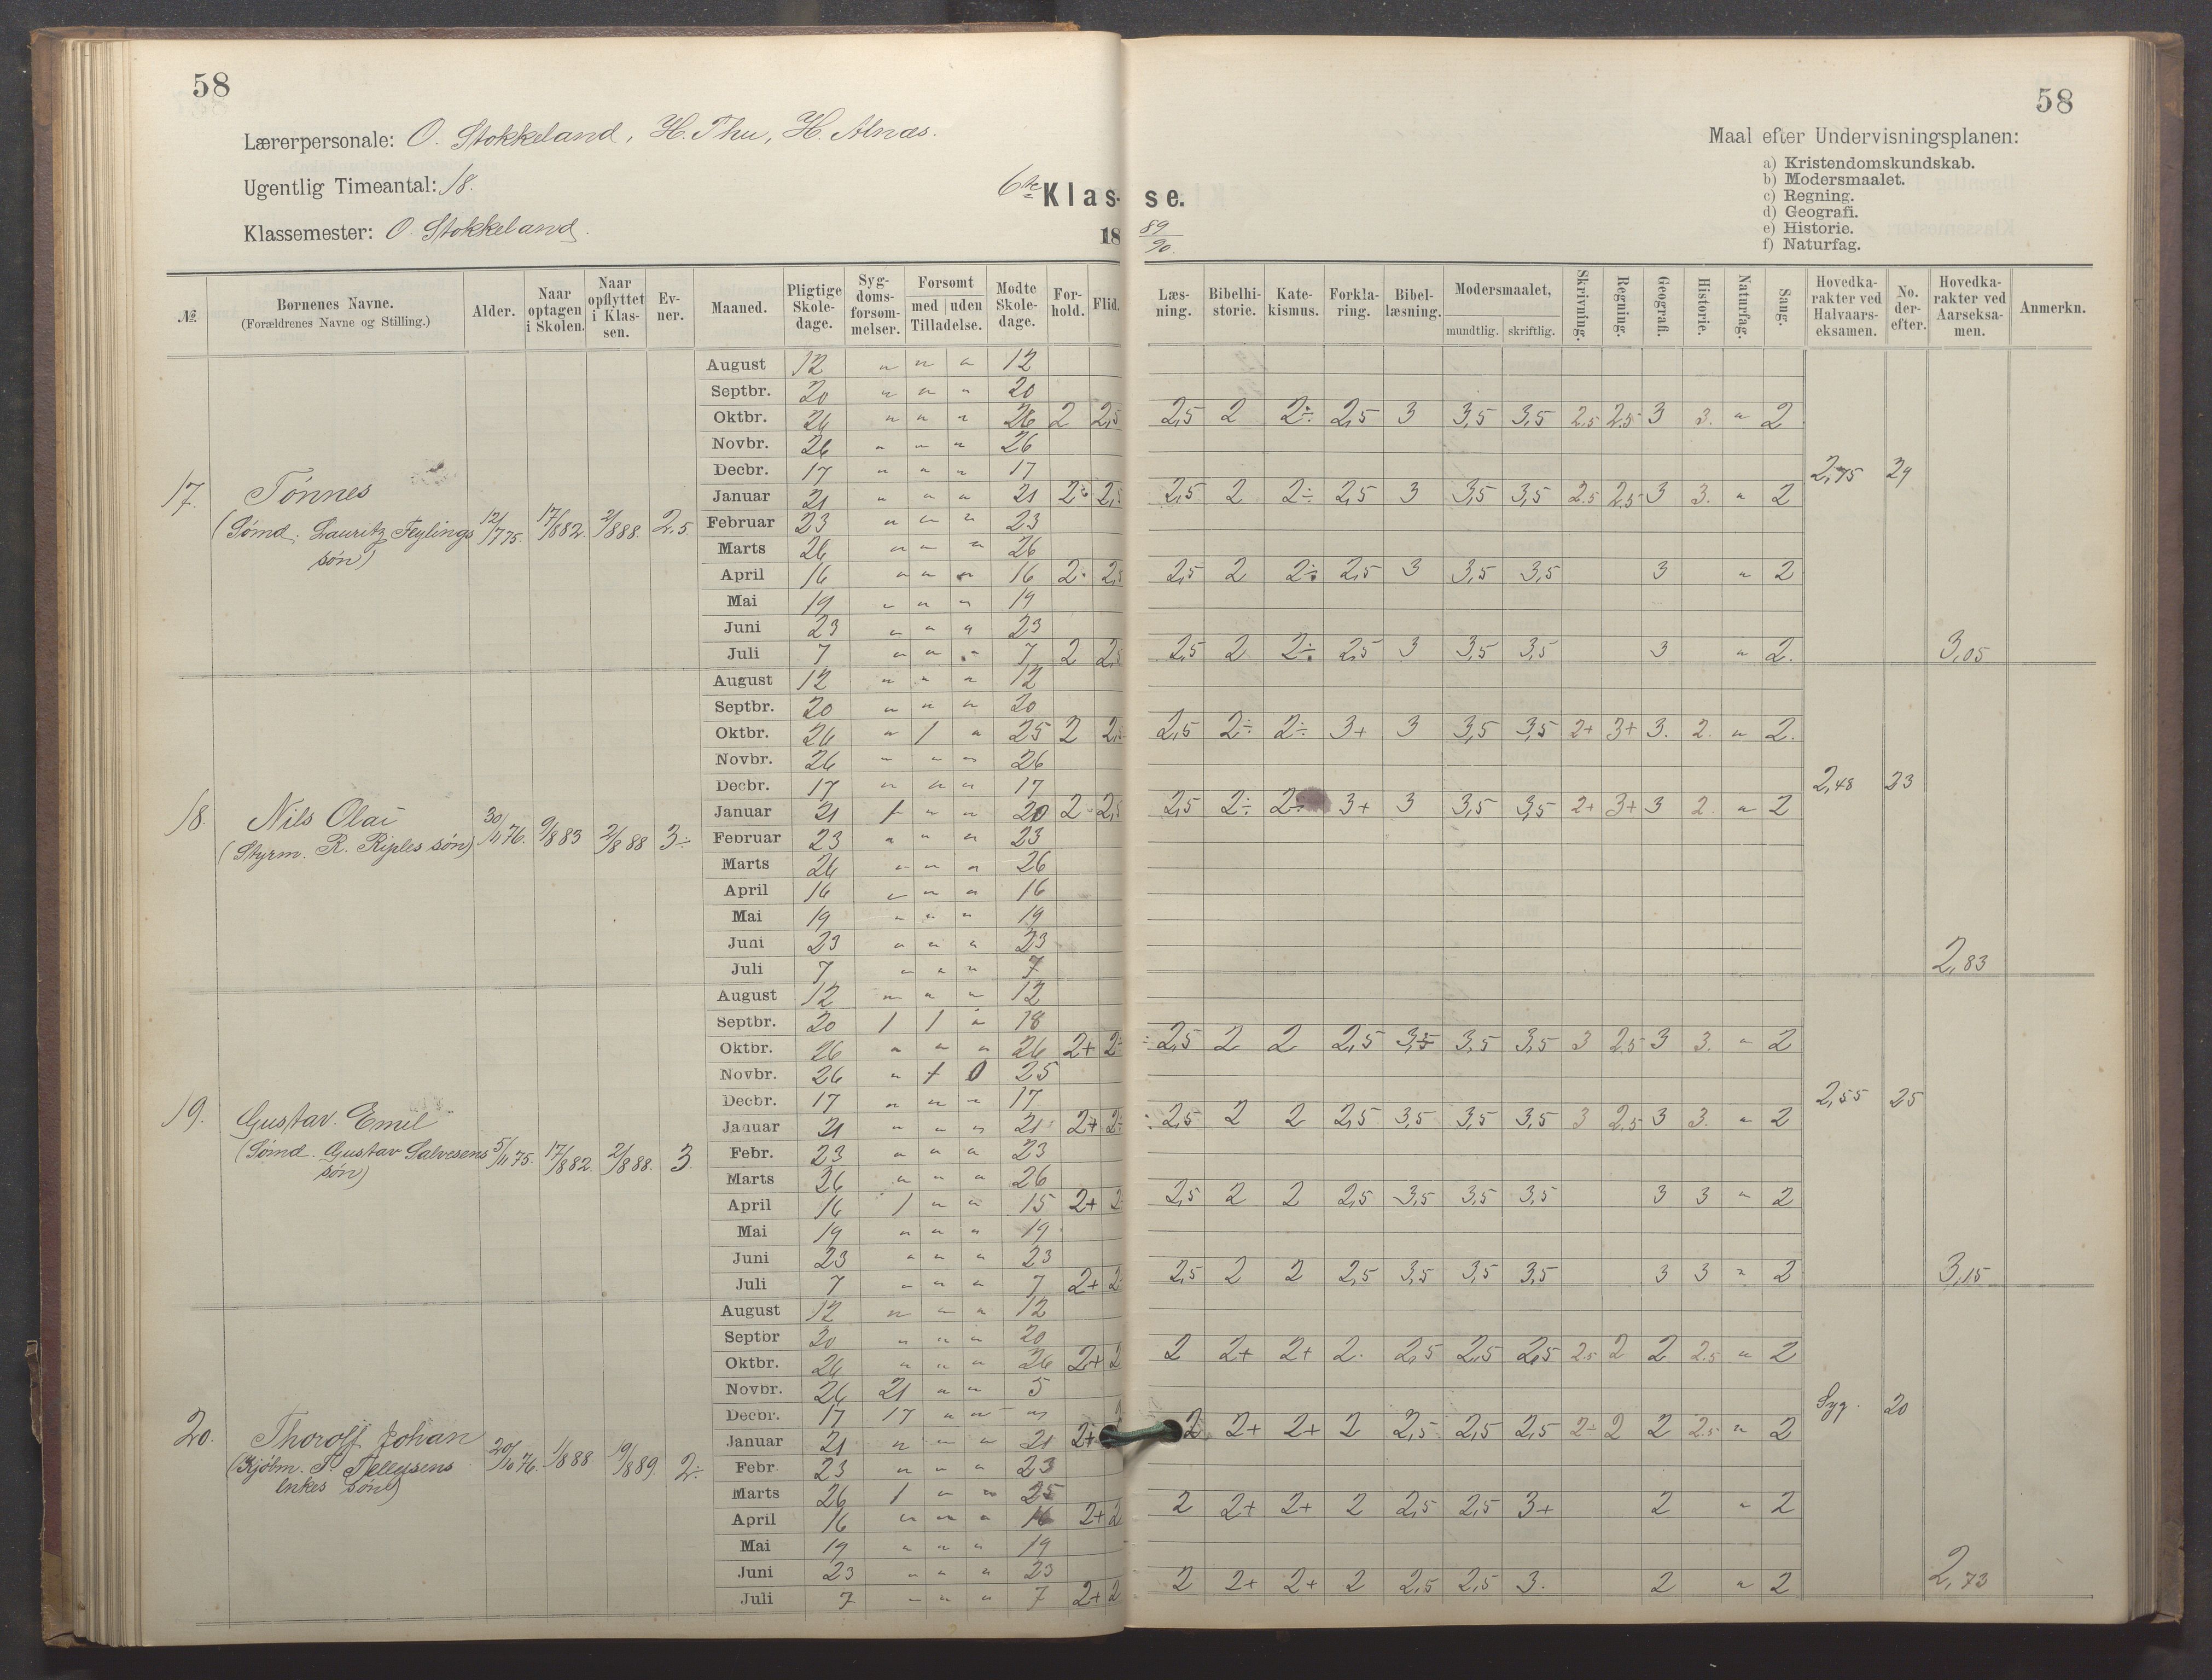 58
Lærerpersonale: O. Stokkeland, H. Thu, H. Alnæs.
Ugentlig Timeantal: 18.
Klassemester: O. Stokkeland.
6te Klas-
18
№ Børnenes Navne. (Forældrenes Navne og Stilling.) Alder. Naar optagen i Skolen. Naar opflyttet i Klassen. Evner. Maaned. Pligtige Skoledage. Sygdomsforsømmelser. Forsømt med uden Tilladelse. Mødte Skoledage. Forhold. Flid.
August 12 " " " 12
Septbr. 20 " " " 20
Oktbr. 26 " " " 26 2 2,5
Novbr. 26 " " " 26
Decbr. 17 " " " 17
17. Tønnes
Januar 21 " " " 21 2÷ 2,5
(Sømd. Lauritz Feylings søn) 12/7 75. 17/8 82. 2/8 88. 2,5.
Februar 23 " " " 23
Marts 26 " " " 26
April 16 " " " 16 2· 2,5
Mai 19 " " " 19
Juni 23 " " " 23
Juli 7 " " " 7 2 2,5
August 12 " " " 12
Septbr. 20 " " " 20
Oktbr. 26 " 1 " 25 2 2,5
Novbr. 26 " " " 26
Decbr. 17 " " " 17
18. Nils Olai
Januar 21 1 " " 20 2 2,5
(Styrm. R. Riples søn) 30/11 76. 9/8 83 2/8 88 3÷
Februar 23 " " " 23
Marts 26 " " " 26
April 16 " " " 16
Mai 19 " " " 19
Juni 23 " " " 23
Juli 7 " " " 7
August 12 " " " 12
Septbr. 20 1 1 " 18
Oktbr. 26 " " " 26 2+ 2÷
Novbr. 26 " 1 0 25
Decbr. 17 " " " 17
19. Gustav Emil
Januar 21 " " " 21 2+ 2÷
(Sømd. Gustav Salvesens søn) 5/11 75. 17/8 82. 2/8 88. 3.
Febr. 23 " " " 23
Marts 26 " " " 26
April 16 1 " " 15 2+ 2
Mai 19 " " " 19
Juni 23 " " " 23
Juli 7 " " " 7 2+ 2
August 12 " " " 12
Septbr 20 " " " 20
Oktbr. 26 " " " 26 2+ 2
Novbr. 26 21 " " 5
Decbr. 17 17 " " "
20. Thorolf Johan
Januar 21 " " " 21 2+
(Kjøbm. T. Tellefsens enkes søn) 20/10 76. 1/8 88 19/8 89. 2÷
Febr 23 " " " 23
Marts 26 1 " " 25
April 16 " " " 16 2+ 2
Mai 19 " " " 19
Juni 23 " " " 23
Juli 7 " " " 7 2+ 2
58
Maal efter Undervisningsplanen:
a) Kristendomskundskab.
b) Modersmaalet.
c) Regning.
d) Geografi.
e) Historie.
f) Naturfag.
se.
89/90.
Læsning. Bibelhistorie. Katekismus. Forklaring. Bibellæsning. Modersmaalet, mundtlig. skriftlig. Skrivning. Regning. Geografi. Historie. Naturfag. Sang. Hovedkarakter ved Halvaarseksamen. No. derefter. Hovedkarakter ved Aarseksamen. Anmerkn.
2,5 2 2÷ 2,5 3 3,5 3,5 2,5 2,5 3 3. " 2
2,75 24
2,5 2 2÷ 2,5 3 3,5 3,5 2,5 2,5 3 3. " 2
2,5 2 2÷ 2,5 3 3,5 3,5 3 " 2
2,5 2 2÷ 2,5 3 3,5 3,5 3 " 2. 3,05
2,5 2÷ 2÷ 3+ 3 3,5 3,5 2+ 3+ 3. 2. " 2.
2,48 23
2,5 2÷ 2÷ 3+ 3 3,5 3,5 2+ 3+ 3 2. " 2
2,83
2,5 2 2 2,5 3,5 3,5 3,5 3 2,5 3 3. " 2
2,55 25
2,5 2 2 2,5 3,5 3,5 3,5 3 2,5 3 3. " 2
2,5 2 2 2,5 3,5 3,5 3,5 3 3 " 2
2,5 2 2 2,5 3,5 3,5 3,5 3 3 " 2 3,15
2 2+ 2+ 2. 2,5 2,5 2,5 2,5 2 2 2,5 " 2
Syg. 20
2 2+ 2+ 2 2,5 2,5 2,5 2÷ 2 2 2,5 " 2
2 2+ 2+ 2 2,5 2,5 3+ 2 " 2
2 2+ 2+ 2 2,5 2,5 3. 2 " 2 2,73